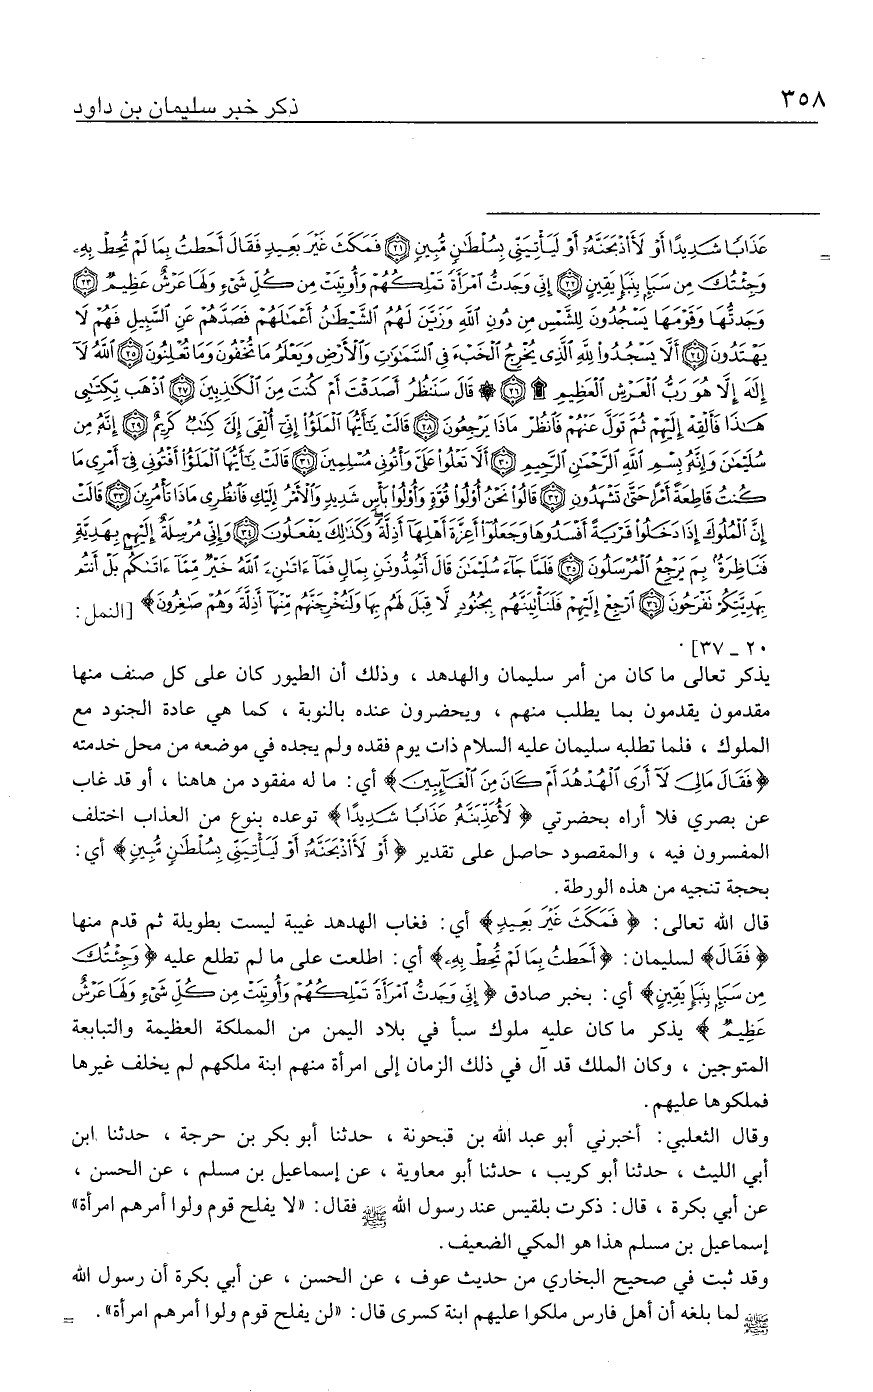 ٣٥٨
ذكر خبر سليمان بن داود
عَذَابًا شَدِيدًا أَوْ لَأَاذْبَحَنَّهُۥٓ أَوْ لَيَأْتِيَنِّي بِسُلْطَٰنٍ مُّبِينٍ ﴿٢١﴾ فَمَكَثَ غَيْرَ بَعِيدٍ فَقَالَ أَحَطتُ بِمَا لَمْ تُحِطْ بِهِۦ =
وَجِئْتُكَ مِن سَبَإٍ بِنَبَإٍ يَقِينٍ ﴿٢٢﴾ إِنِّي وَجَدتُّ ٱمْرَأَةً تَمْلِكُهُمْ وَأُوتِيَتْ مِن كُلِّ شَيْءٍ وَلَهَا عَرْشٌ عَظِيمٌ ﴿٢٣﴾
وَجَدتُّهَا وَقَوْمَهَا يَسْجُدُونَ لِلشَّمْسِ مِن دُونِ ٱللَّهِ وَزَيَّنَ لَهُمُ ٱلشَّيْطَٰنُ أَعْمَٰلَهُمْ فَصَدَّهُمْ عَنِ ٱلسَّبِيلِ فَهُمْ لَا
يَهْتَدُونَ ﴿٢٤﴾ أَلَّا يَسْجُدُوا۟ لِلَّهِ ٱلَّذِي يُخْرِجُ ٱلْخَبْءَ فِي ٱلسَّمَٰوَٰتِ وَٱلْأَرْضِ وَيَعْلَمُ مَا تُخْفُونَ وَمَا تُعْلِنُونَ ﴿٢٥﴾ ٱللَّهُ لَآ
إِلَٰهَ إِلَّا هُوَ رَبُّ ٱلْعَرْشِ ٱلْعَظِيمِ ۩ ﴿٢٦﴾ ۞ قَالَ سَنَنظُرُ أَصَدَقْتَ أَمْ كُنتَ مِنَ ٱلْكَٰذِبِينَ ﴿٢٧﴾ ٱذْهَب بِّكِتَٰبِي
هَٰذَا فَأَلْقِهْ إِلَيْهِمْ ثُمَّ تَوَلَّ عَنْهُمْ فَٱنظُرْ مَاذَا يَرْجِعُونَ ﴿٢٨﴾ قَالَتْ يَٰٓأَيُّهَا ٱلْمَلَؤُا۟ إِنِّيٓ أُلْقِيَ إِلَيَّ كِتَٰبٌ كَرِيمٌ ﴿٢٩﴾ إِنَّهُۥ مِن
سُلَيْمَٰنَ وَإِنَّهُۥ بِسْمِ ٱللَّهِ ٱلرَّحْمَٰنِ ٱلرَّحِيمِ ﴿٣٠﴾ أَلَّا تَعْلُوا۟ عَلَيَّ وَأْتُونِي مُسْلِمِينَ ﴿٣١﴾ قَالَتْ يَٰٓأَيُّهَا ٱلْمَلَؤُا۟ أَفْتُونِي فِيٓ أَمْرِي مَا
كُنتُ قَاطِعَةً أَمْرًا حَتَّىٰ تَشْهَدُونِ ﴿٣٢﴾ قَالُوا۟ نَحْنُ أُو۟لُوا۟ قُوَّةٍ وَأُو۟لُوا۟ بَأْسٍ شَدِيدٍ وَٱلْأَمْرُ إِلَيْكِ فَٱنظُرِي مَاذَا تَأْمُرِينَ ﴿٣٣﴾ قَالَتْ
إِنَّ ٱلْمُلُوكَ إِذَا دَخَلُوا۟ قَرْيَةً أَفْسَدُوهَا وَجَعَلُوٓا۟ أَعِزَّةَ أَهْلِهَآ أَذِلَّةً ۖ وَكَذَٰلِكَ يَفْعَلُونَ ﴿٣٤﴾ وَإِنِّي مُرْسِلَةٌ إِلَيْهِم بِهَدِيَّةٍ
فَنَاظِرَةٌۢ بِمَ يَرْجِعُ ٱلْمُرْسَلُونَ ﴿٣٥﴾ فَلَمَّا جَآءَ سُلَيْمَٰنَ قَالَ أَتُمِدُّونَنِ بِمَالٍ فَمَآ ءَاتَىٰنِۦَ ٱللَّهُ خَيْرٌ مِّمَّآ ءَاتَىٰكُم بَلْ أَنتُم
بِهَدِيَّتِكُمْ تَفْرَحُونَ ﴿٣٦﴾ ٱرْجِعْ إِلَيْهِمْ فَلَنَأْتِيَنَّهُم بِجُنُودٍ لَّا قِبَلَ لَهُم بِهَا وَلَنُخْرِجَنَّهُم مِّنْهَآ أَذِلَّةً وَهُمْ صَٰغِرُونَ﴾ [النمل :
٢٠ ـ ٣٧] .
يذكر تعالى ما كان من أمر سليمان والهدهد ، وذلك أن الطيور كان على كل صنف منها
مقدمون يقدمون بما يطلب منهم ، ويحضرون عنده بالنوبة ، كما هي عادة الجنود مع
الملوك ، فلما تطلبه سليمان عليه السلام ذات يوم فقده ولم يجده في موضعه من محل خدمته
﴿فَقَالَ مَالِيَ لَآ أَرَى ٱلْهُدْهُدَ أَمْ كَانَ مِنَ ٱلْغَآئِبِينَ﴾ أي : ما له مفقود من هاهنا ، أو قد غاب
عن بصري فلا أراه بحضرتي ﴿لَأُعَذِّبَنَّهُۥ عَذَابًا شَدِيدًا﴾ توعده بنوع من العذاب اختلف
المفسرون فيه ، والمقصود حاصل على تقدير ﴿أَوْ لَأَاذْبَحَنَّهُۥٓ أَوْ لَيَأْتِيَنِّي بِسُلْطَٰنٍ مُّبِينٍ﴾ أي :
بحجة تنجيه من هذه الورطة .
قال الله تعالى : ﴿فَمَكَثَ غَيْرَ بَعِيدٍ﴾ أي : فغاب الهدهد غيبة ليست بطويلة ثم قدم منها
﴿فَقَالَ﴾ لسليمان : ﴿أَحَطتُ بِمَا لَمْ تُحِطْ بِهِۦ﴾ أي : اطلعت على ما لم تطلع عليه ﴿وَجِئْتُكَ
مِن سَبَإٍ بِنَبَإٍ يَقِينٍ﴾ أي : بخبر صادق ﴿إِنِّي وَجَدتُّ ٱمْرَأَةً تَمْلِكُهُمْ وَأُوتِيَتْ مِن كُلِّ شَيْءٍ وَلَهَا عَرْشٌ
عَظِيمٌ﴾ يذكر ما كان عليه ملوك سبأ في بلاد اليمن من المملكة العظيمة والتبابعة
المتوجين ، وكان الملك قد آل في ذلك الزمان إلى امرأة منهم ابنة ملكهم لم يخلف غيرها
فملكوها عليهم .
وقال الثعلبي : أخبرني أبو عبد الله بن قبحونة ، حدثنا أبو بكر بن حرجة ، حدثنا ابن
أبي الليث ، حدثنا أبو كريب ، حدثنا أبو معاوية ، عن إسماعيل بن مسلم ، عن الحسن ،
عن أبي بكرة ، قال : ذكرت بلقيس عند رسول الله ﷺ فقال : «لا يفلح قوم ولوا أمرهم امرأة»
إسماعيل بن مسلم هذا هو المكي الضعيف .
وقد ثبت في صحيح البخاري من حديث عوف ، عن الحسن ، عن أبي بكرة أن رسول الله
ﷺ لما بلغه أن أهل فارس ملكوا عليهم ابنة كسرى قال : «لن يفلح قوم ولوا أمرهم امرأة» . =